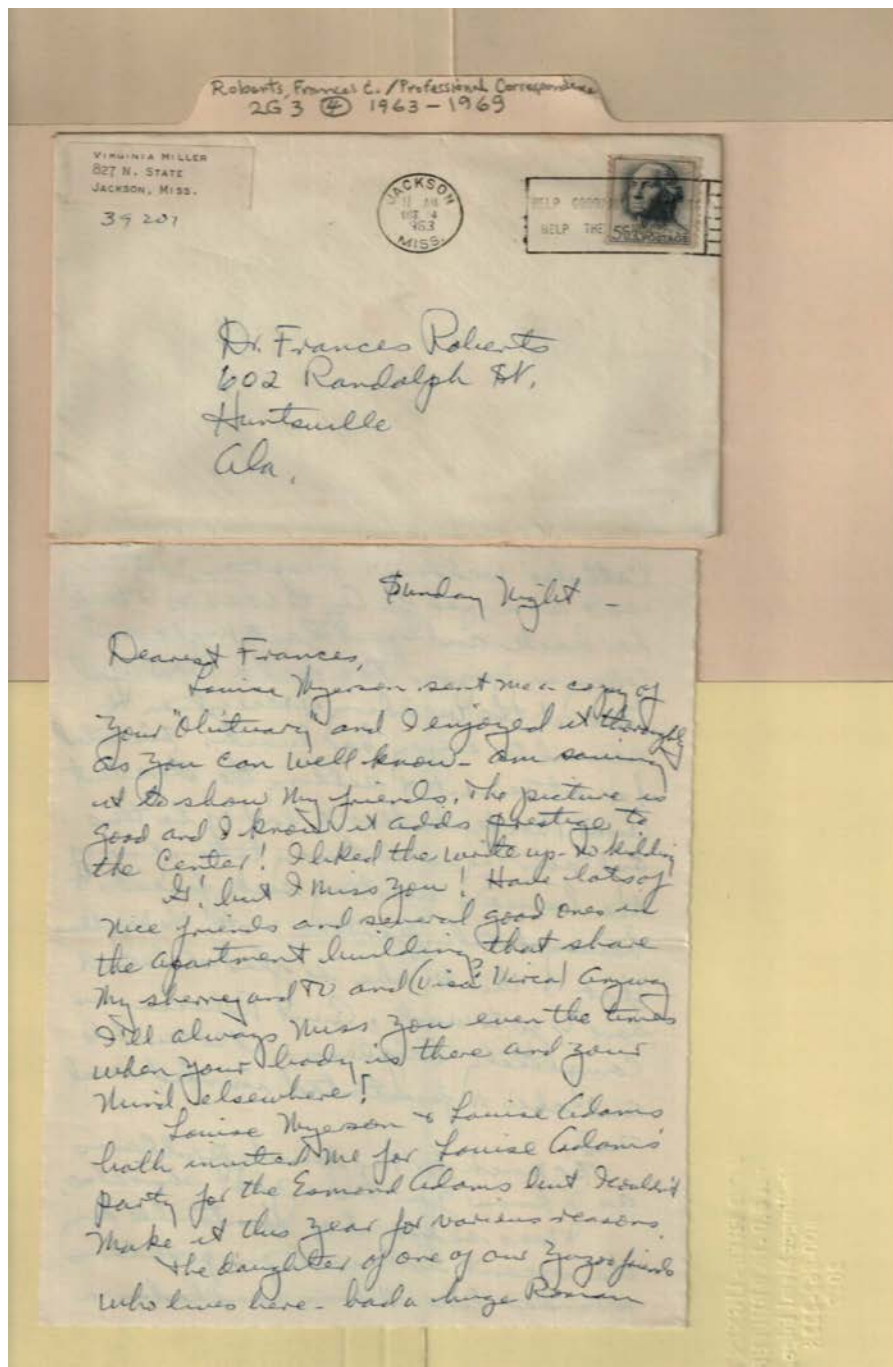 Roberts, Frances C. / Professional Correspondence
2G3 ④ 1963-1969
VIRGINIA MILLER
827 N. STATE
JACKSON, MISS.
39201
JACKSON
AM
1963
MISS.
HELP
HELP THE
5¢ U.S. POSTAGE
Dr. Frances Roberts
602 Randolph St.
Huntsville
Ala.
Sunday Night -
Dearest Frances,
Louise Myerson sent me a copy of
your "obituary" and I enjoyed it thoroughly
as you can well know - am saving
it to show my friends. The picture is
good and I know it adds prestige to
the Center! I liked the write up - no kidding
G! but I miss you! Have lots of
nice friends and several good ones in
the apartment building that share
my sherry and TV and (Visa? Virca) anyway
I'll always miss you even the times
when your body is there and your
mind elsewhere!
Louise Myerson & Louise Adams
both invited me for Louise Adams'
party for the Esmond Adams but I couldn't
make it this year for various reasons.
The daughter of one of our Yazoo friends
who lives here - had a huge Roman